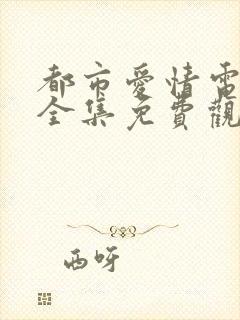 都市愛情電
全集免費觀
西呀